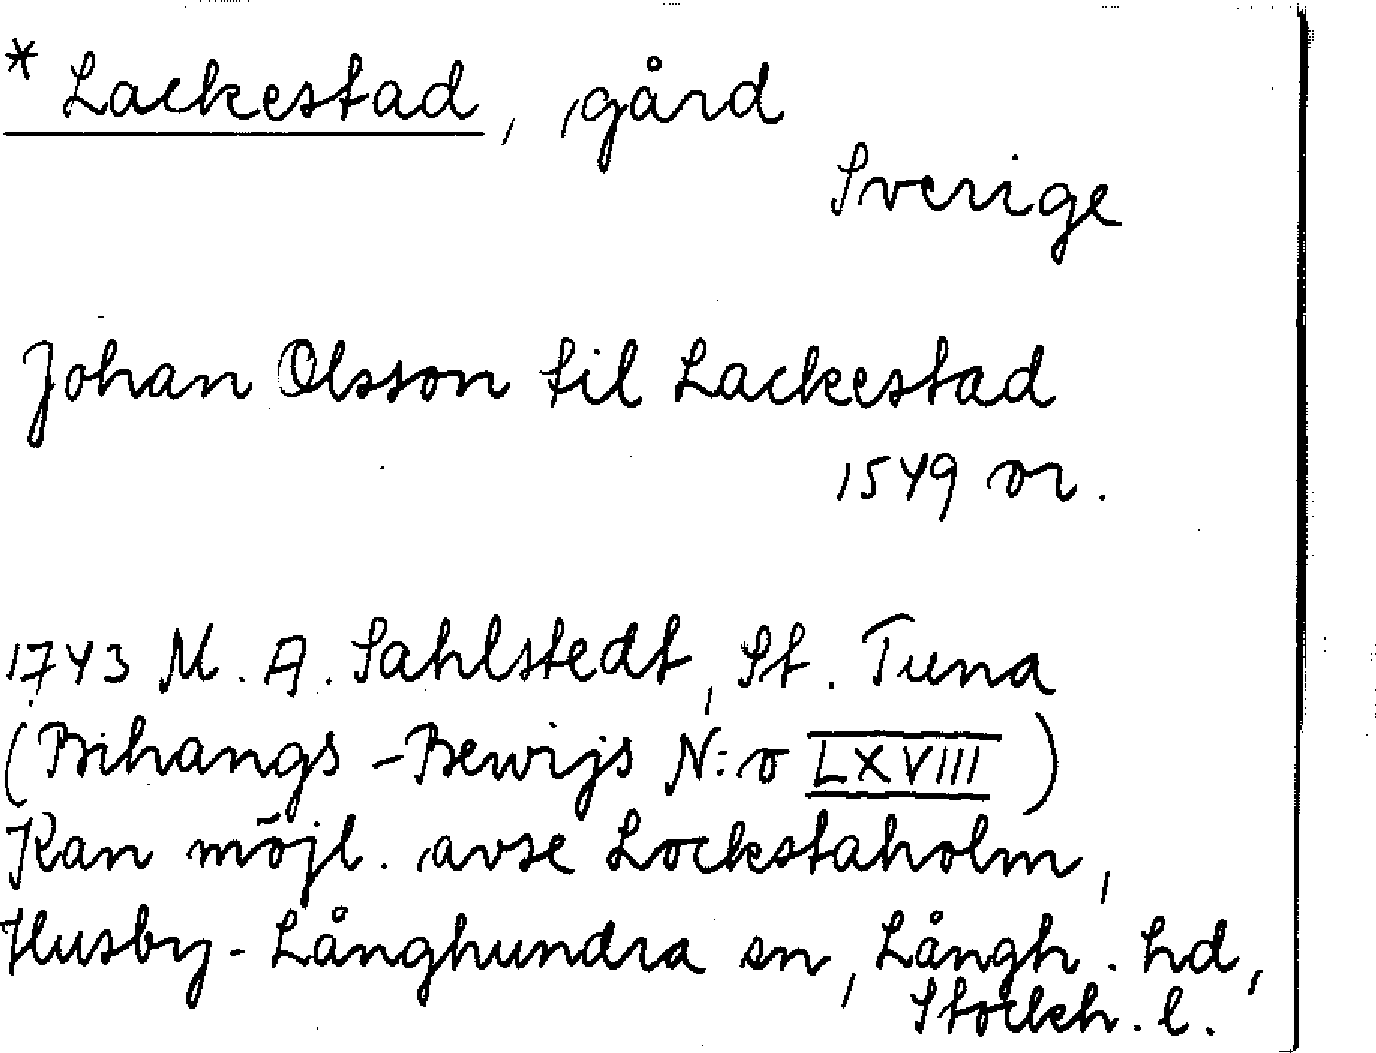 * Lackestad, gård
Sverige
Johan Olsson til Lackestad
1549 or.
1743 M. A. Sahlstedt, St. Tuna
(Bihangs-Bewijs N:o LXVIII)
Kan möjl. avse Lockstaholm,
Husby-Långhundra sn, Långh. hd,
Stockh. l.